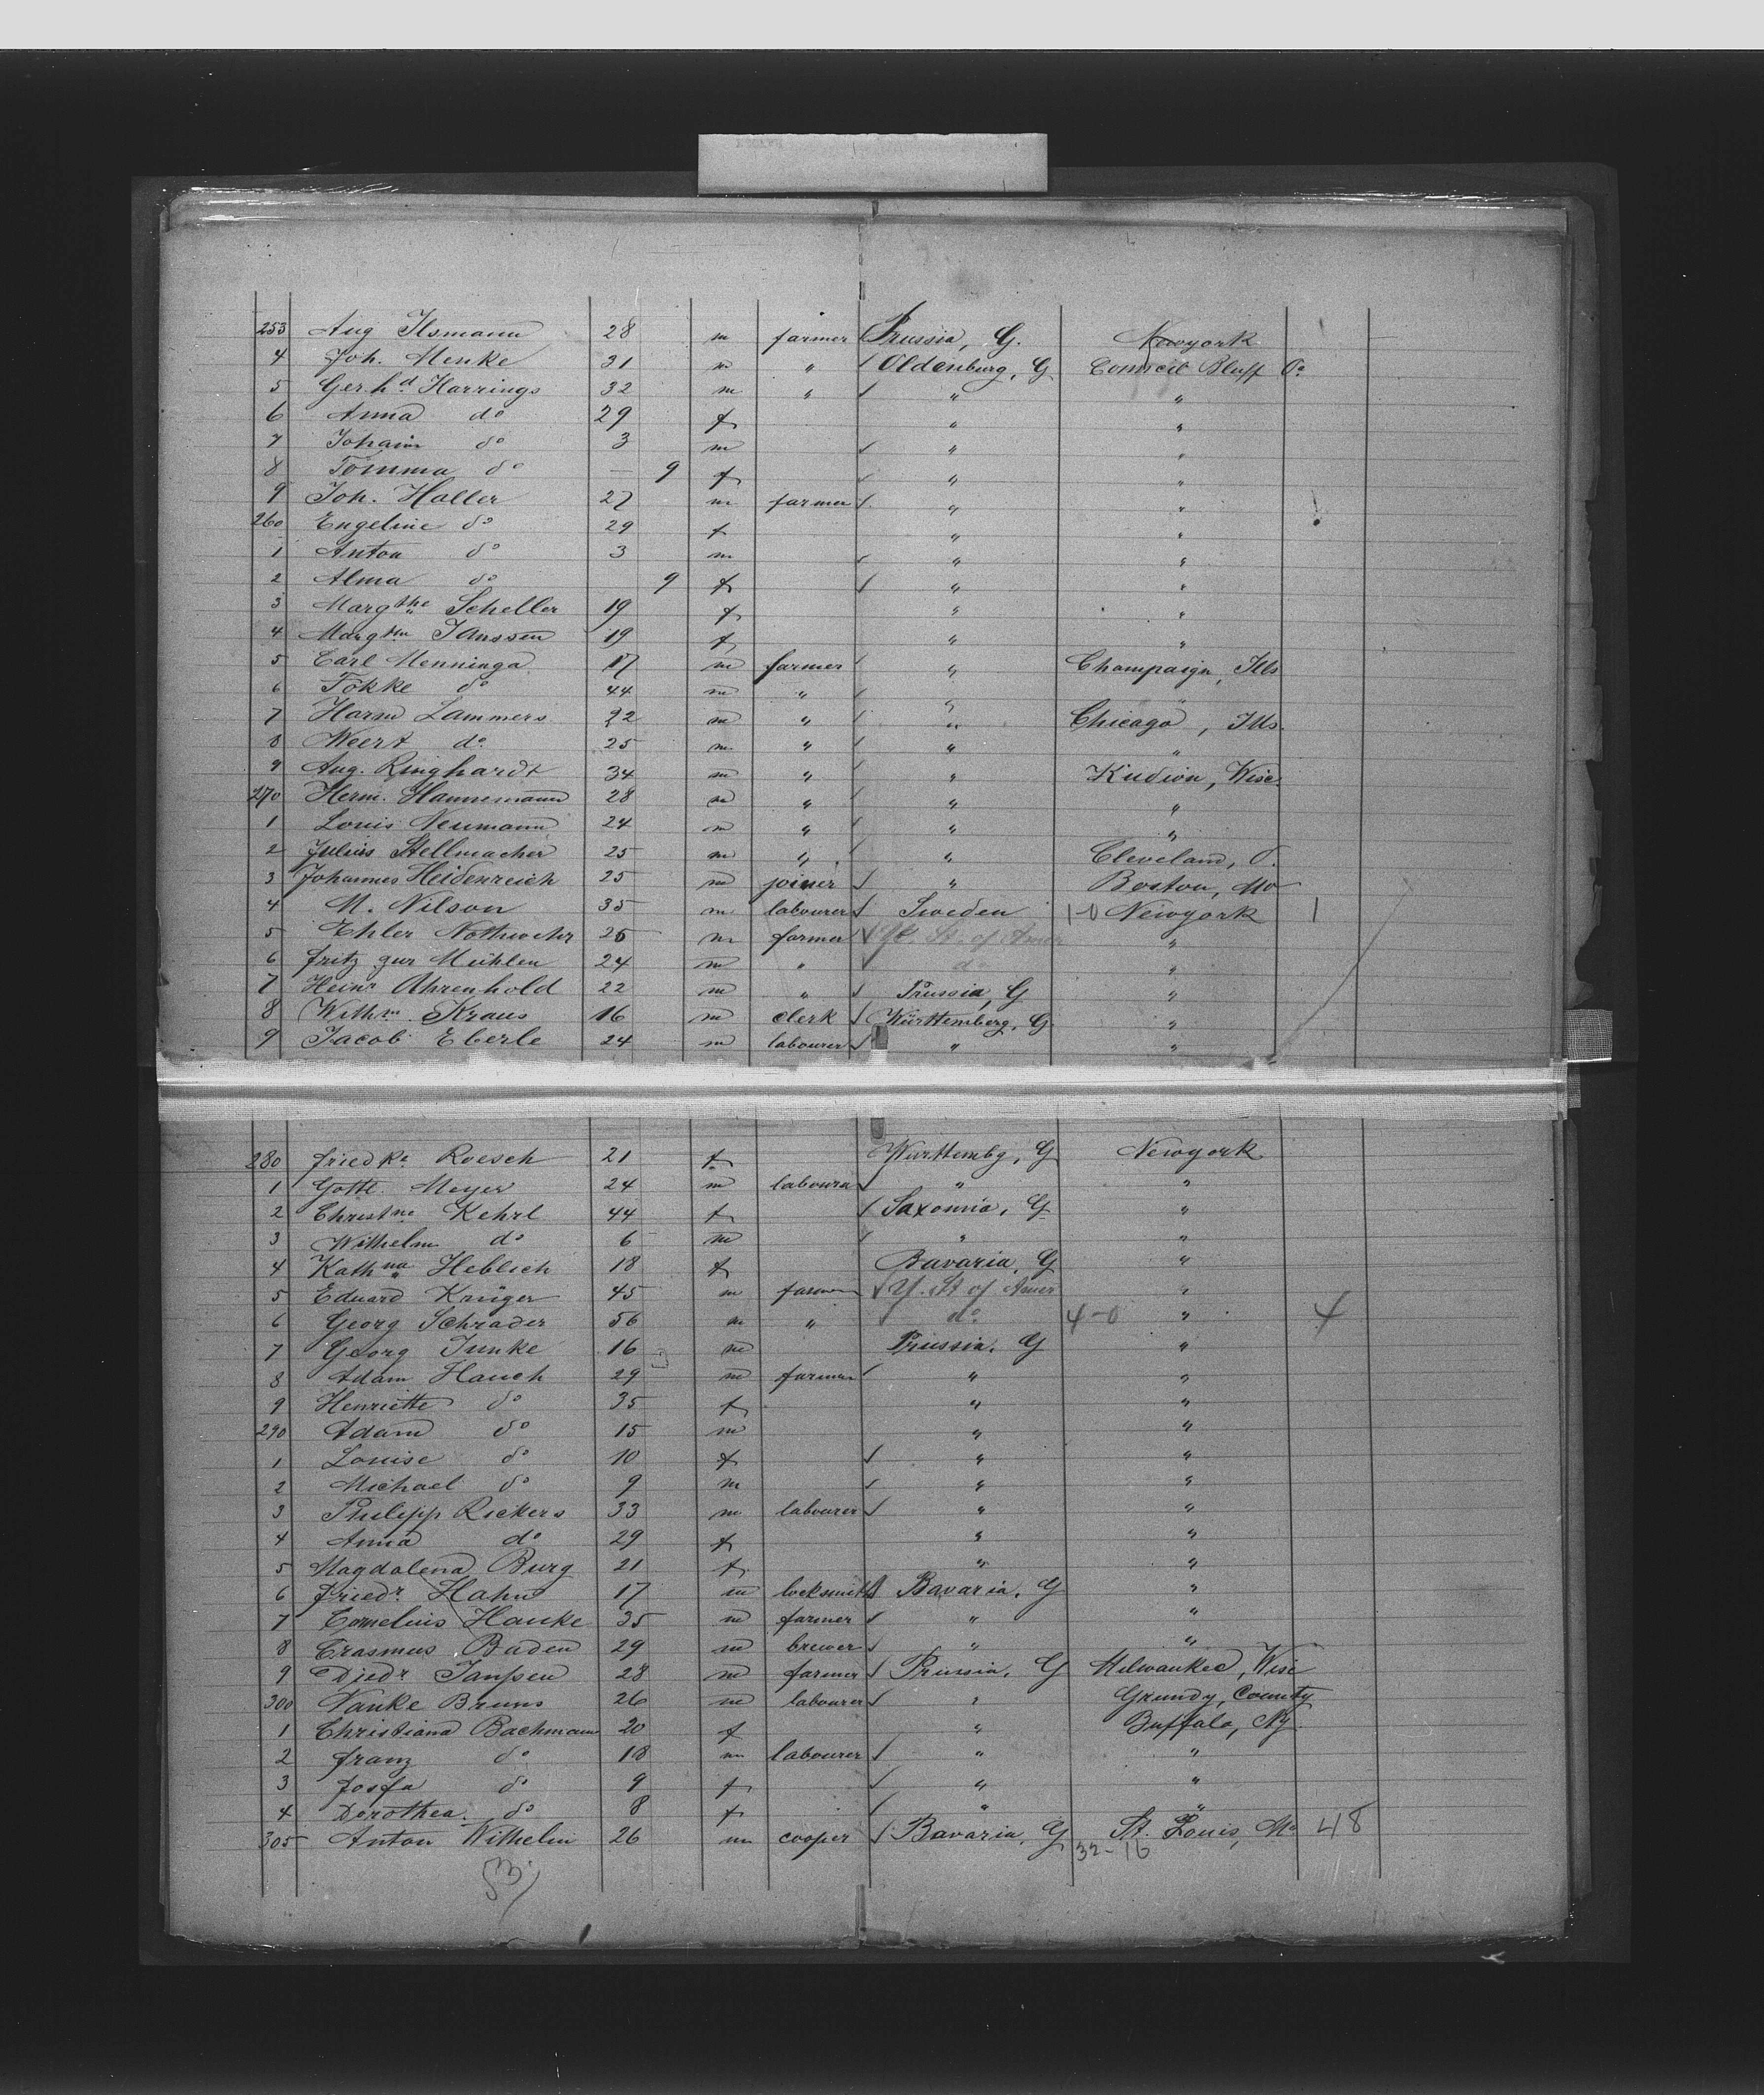 253 Aug Ilsmann 28 m farmer Prussia, G. Newyork
4 Joh. Menke 31 m " Oldenburg, G Council Bluff Oa
5 Gerhd Harrings 32 m " " "
6 Anna do 29 f " "
7 Johann do 3 m " "
8 Tomma do — 9 f " "
9 Joh. Haller 27 m farmer " "
260 Engeline do 29 f " "
1 Anton do 3 m " "
2 Alma do 9 f " "
3 Margthe Scheller 19 f " "
4 Margthe Janssen 19 f " "
5 Carl Menninga 17 m farmer " Champaign, Ills
6 Fokke do 44 m " " "
7 Harm Lammers 22 m " " Chicago, Ills.
8 Weert do 25 m " " "
9 Aug. Ringhardt 34 m " " Wisc.
270 Herm. Hannemann 28 m " " "
1 Louis Neumann 24 m " " "
2 Julius Stellmacher 25 m " " Cleveland, O.
3 Johannes Heidenreich 25 m joiner " Boston, Mo
4 M. Nilson 35 m labourer Sweden 1-0 Newyork 1
5 Ehler Nothwehr 26 m farmer St. of Amer "
6 Fritz zur Mühlen 24 m " do "
7 Heinr Ahrenhold 22 m " Prussia, G "
8 Wilhm Kraus 16 m clerk Württemberg, G "
9 Jacob Eberle 24 m labourer " "
280 Friedke Roesch 21 f Württembg, G Newyork
1 Gottl. Meyer 24 m labourer " "
2 Christne Kehrl 44 f Saxonia, G "
3 Wilhelm do 6 m " "
4 Kathna Heblich 18 f Bavaria, G "
5 Eduard Krüger 45 m farmer U. St of Amer "
6 Georg Schrader 56 m " do 4-0 " 4
7 Georg Junke 16 m Prussia, G "
8 Adam Hauch 29 m farmer " "
9 Henriette do 35 f " "
290 Adam do 15 m " "
1 Louise do 10 f " "
2 Michael do 9 m " "
3 Philipp Rickers 33 m labourer " "
4 Anna do 29 f " "
5 Magdalena Burg 21 f " "
6 Friedr Hahn 17 m locksmith Bavaria, G "
7 Cornelius Hanke 35 m farmer " "
8 Erasmus Baden 29 m brewer " "
9 Diedr Janssen 28 m farmer Prussia, G Milwaukee, Wisc
300 Bruns 26 m labourer " Grundy, County
1 Christiana Bachmann 20 f " Buffalo, Ny.
2 Franz do 18 m labourer " "
3 Josfa do 9 f " "
4 Dorothea do 8 f " "
305 Anton Wilhelm 26 m cooper Bavaria, G St. Louis, Mo 48
32-16
53